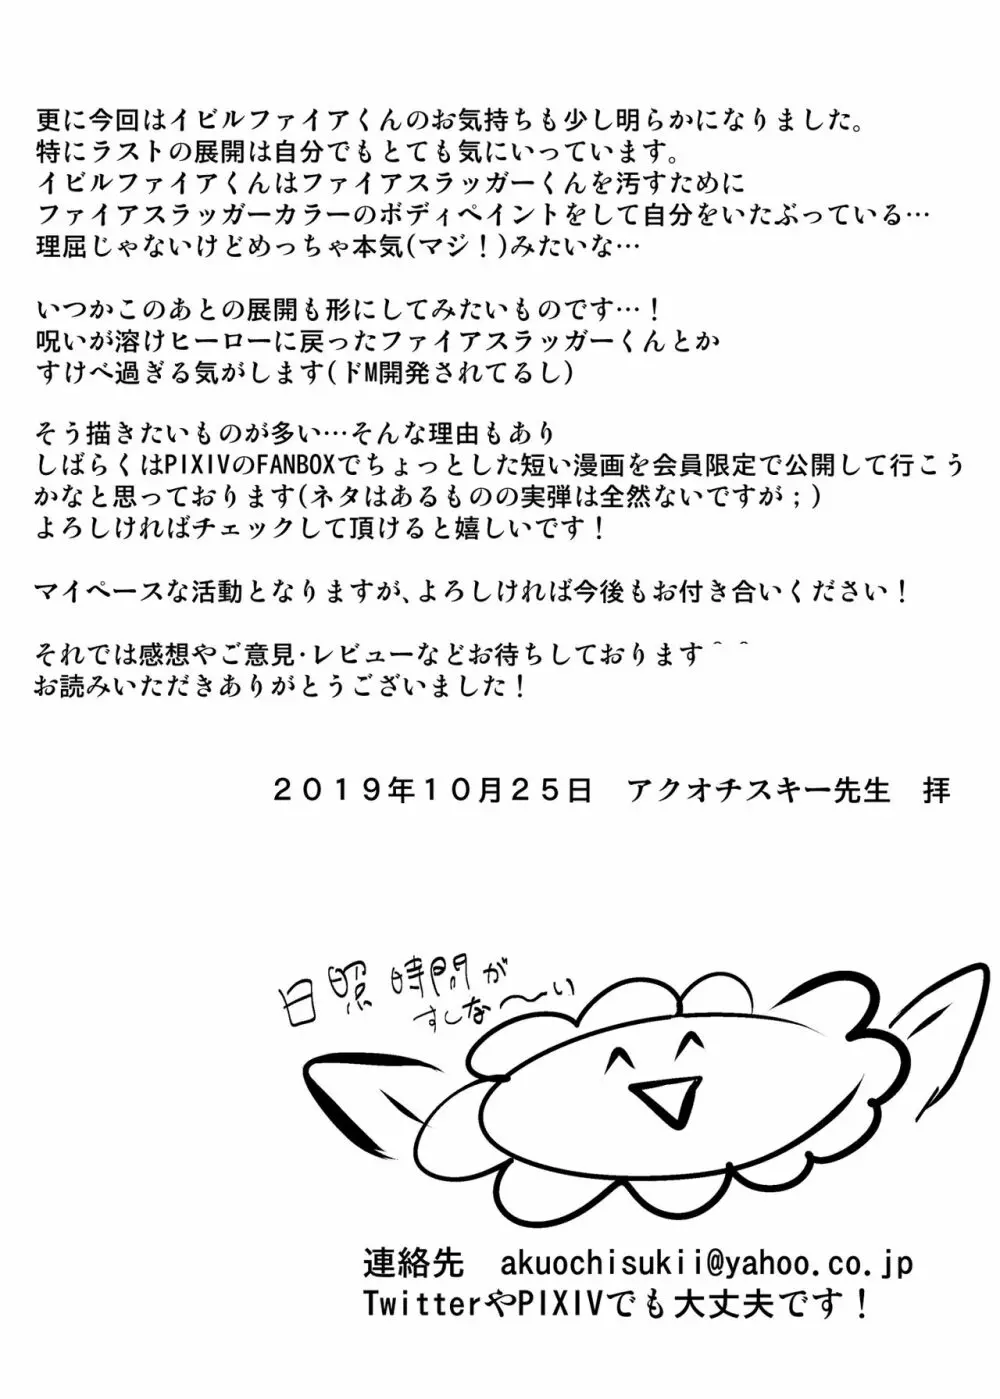 更に今回はイビルファイアくんのお気持ちも少し明らかになりました。
特にラストの展開は自分でもとても気にいっています。
イビルファイアくんはファイアスラッガーくんを汚すために
ファイアスラッガーカラーのボディペイントをして自分をいたぶっている…
理屈じゃないけどめっちゃ本気(マジ！)みたいな…
いつかこのあとの展開も形にしてみたいものです…！
呪いが溶けヒーローに戻ったファイアスラッガーくんとか
すけべ過ぎる気がします(ドM開発されてるし)
そう描きたいものが多い…そんな理由もあり
しばらくはPIXIVのFANBOXでちょっとした短い漫画を会員限定で公開して行こう
かなと思っております(ネタはあるものの実弾は全然ないですが；)
よろしければチェックして頂けると嬉しいです！
マイペースな活動となりますが、よろしければ今後もお付き合いください！
それでは感想やご意見・レビューなどお待ちしております＾＾
お読みいただきありがとうございました！
２０１９年１０月２５日　アクオチスキー先生　拝
日照時間が
すしな〜い
連絡先　akuochisukii@yahoo.co.jp
TwitterやPIXIVでも大丈夫です！